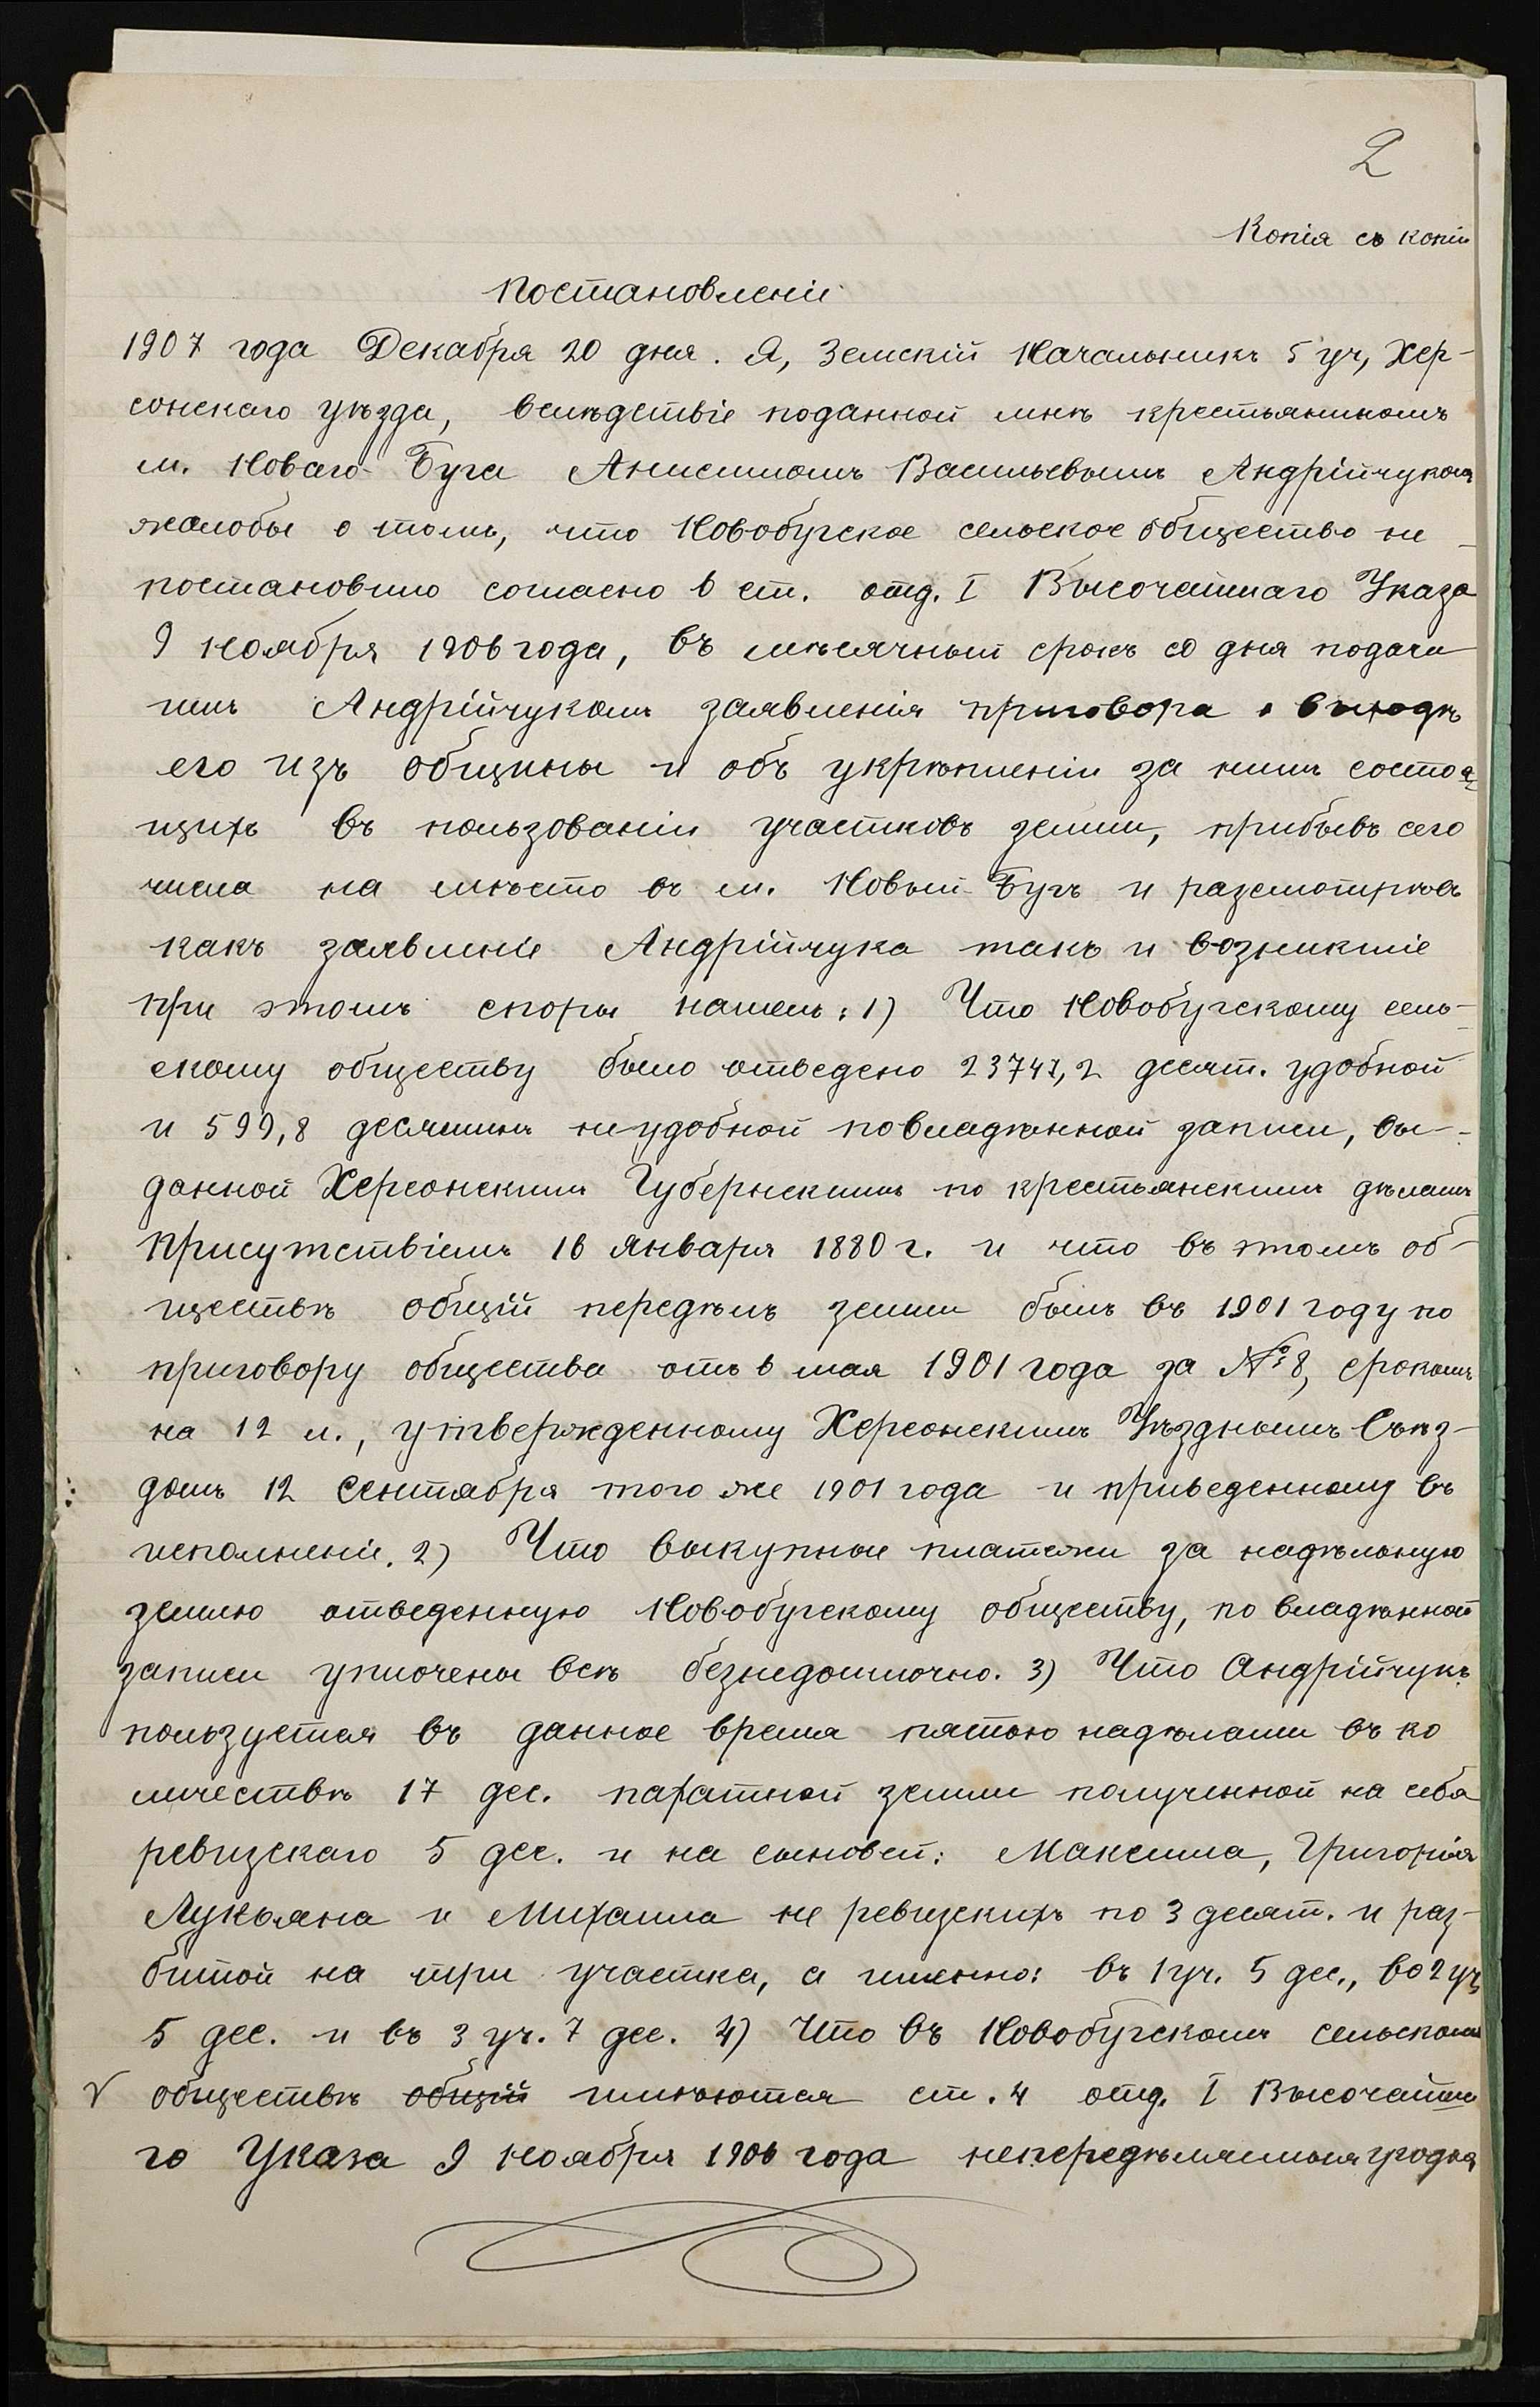 2
Копія съ копіи
Постановленіе
1907 года Декабря 20 дня. Я, Земскій Начальникъ 5 уч, Хер-
сонскаго уѣзда, вслѣдствіе поданной мнѣ крестьяниномъ
м. Новаго-Буга Анисимомъ Васильевымъ Андрійчукомъ
жалобы о томъ, что Новобугское сельское общество не
постановило согласно 6 ст. отд. I Высочайшаго Указа
9 ноября 1906 года, въ мѣсячный срокъ со дня подачи
имъ Андрійчукомъ заявленія приговора о выходѣ
его изъ общины и объ укрѣпленіи за нимъ состоя-
щихъ въ пользованіи участковъ земли, прибывъ сего
числа на мѣсто въ м. Новый-Бугъ и разсмотрѣвъ
какъ заявленіе Андрійчука такъ и возникшіе
при этомъ споры нашелъ: 1) Что Новобугскому сель-
скому обществу было отведено 23747,2 десят. удобной
и 599,8 десятинъ неудобной по владѣнной записи, вы-
данной Херсонскимъ Губернскимъ по крестьянскимъ дѣламъ
Присутствіемъ 16 января 1880 г. и что въ этомъ об-
ществѣ общій передѣлъ земли былъ въ 1901 году по
приговору общества отъ 6 мая 1901 года за № 8, срокомъ
на 12 л., утвержденному Херсонскимъ Уѣзднымъ Съѣз-
домъ 12 Сентября того же 1901 года и приведенному въ
исполненіе. 2) Что выкупные платежи за надѣльную
землю отведенную Новобугскому обществу, по владѣнной
записи уплочены всѣ безнедоимочно. 3) Что Андрійчукъ
пользуется въ данное время пятью надѣлами въ ко
личествѣ 17 дес. пахатной земли полученной на себя
ревизскаго 5 дес. и на сыновей: Максима, Григорія
Лукьяна и Михаила не ревизскихъ по 3 десят. и раз-
битой на три участка, а именно: въ 1 уч. 5 дес., во 2 уч,
5 дес. и въ 3 уч. 7 дес. 4) Что въ Новобугскомъ сельскомъ
√ обществѣ общій имѣются ст. 4 отд. I Высочайша
го Указа 9 ноября 1906 года непередѣляемыя угодья